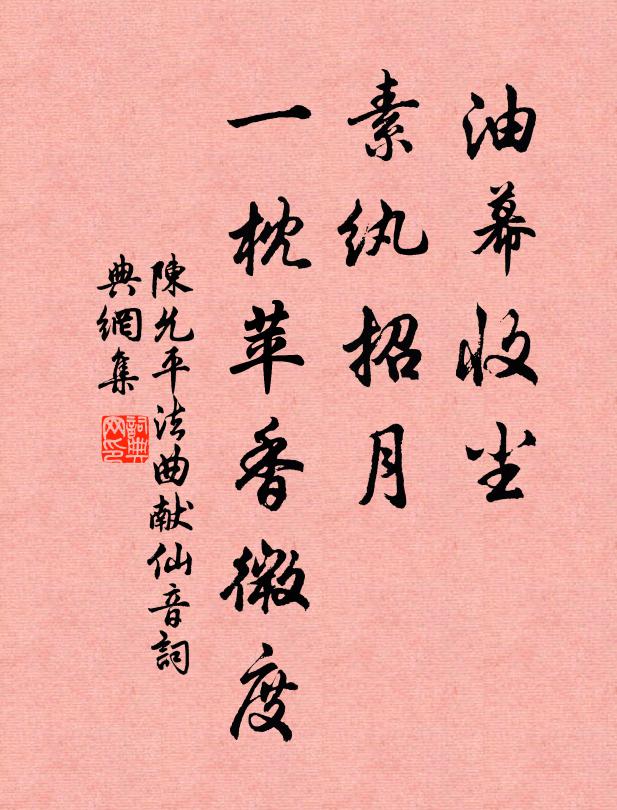 油幕收尘
素纨招月
一枕苹香微度
陳允平法曲献仙音詞
典網集
詞典
网印